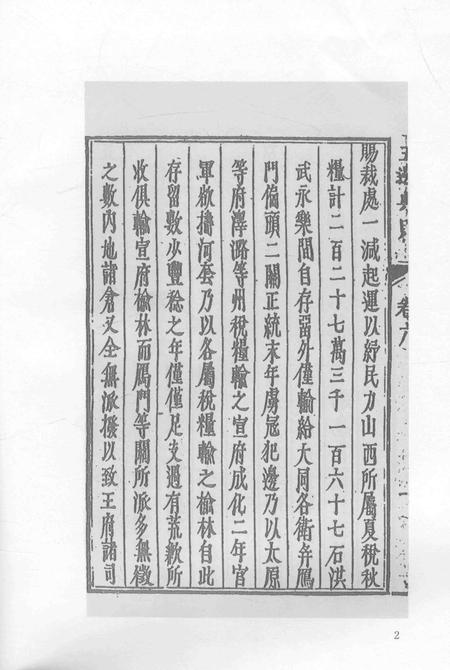 卷六
賜裁處一減起運以紓民力山西所屬夏稅秋
糧計二百二十七萬三千一百六十七石洪
武永樂間自存留外僅輸給大同各衛并鴈
門偏頭二關正統末年虜寇犯邊乃以太原
等府澤潞等州稅糧輸之宣府成化二年官
軍欲擣河套乃以各屬稅糧輸之榆林自此
存留數少豐稔之年僅僅足支遇有荒歉所
收俱輸宣府榆林而鴈門等關所派多無徵
之數內地諸倉又全無派撥以致王府諸司
2